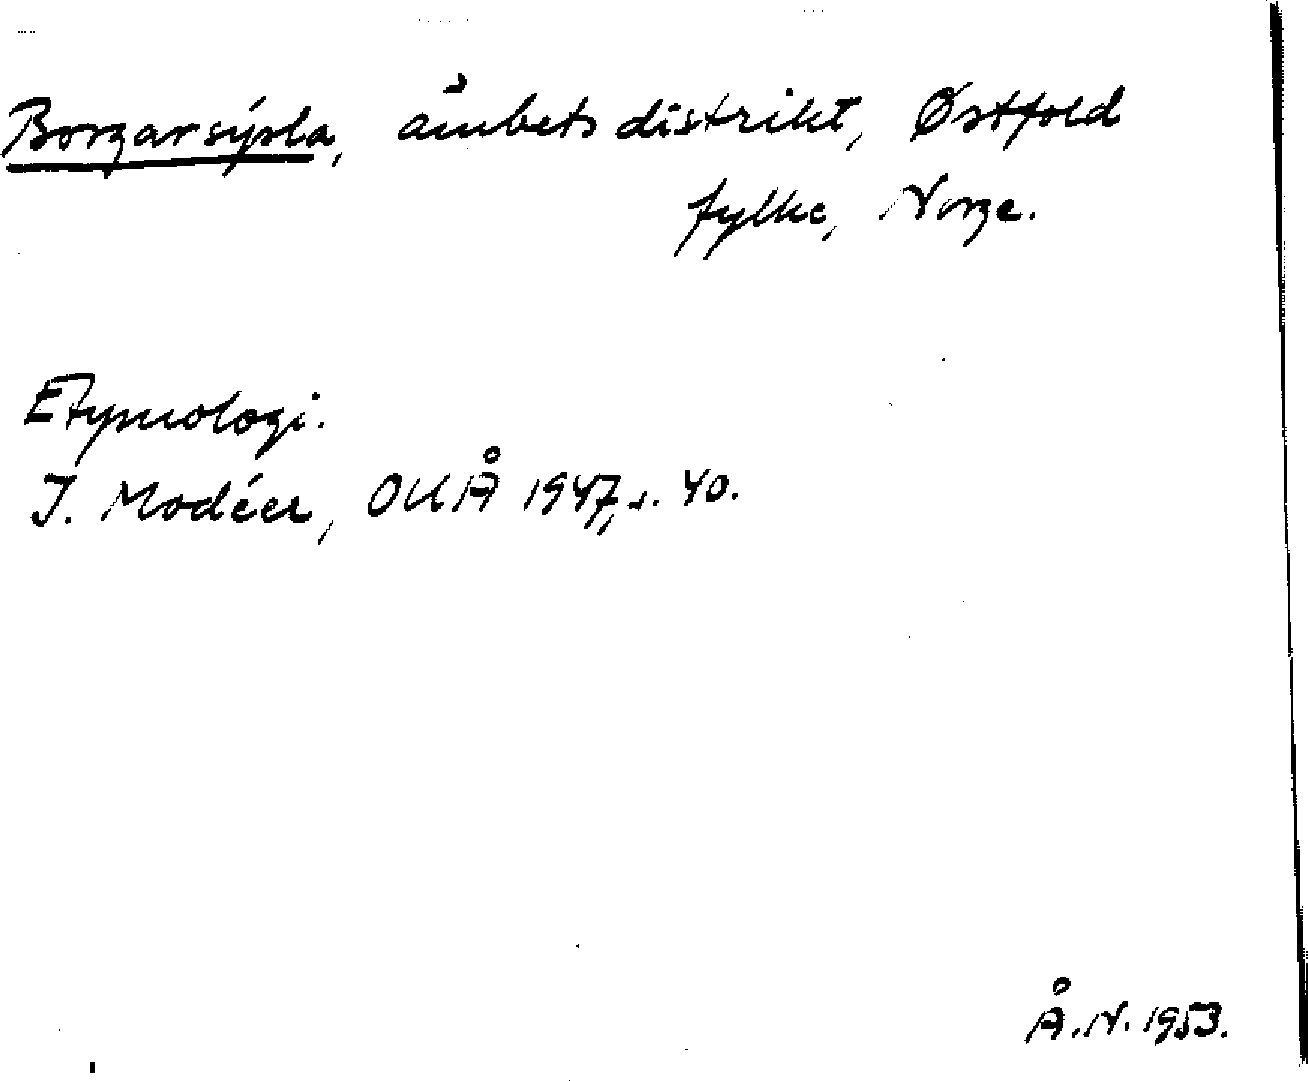 Borgarsýsla, ämbetsdistrikt, Østfold
fylke, Norge.
Etymologi.
I. Modéer, OUÅ 1947, s. 40.
Å.N. 1953.